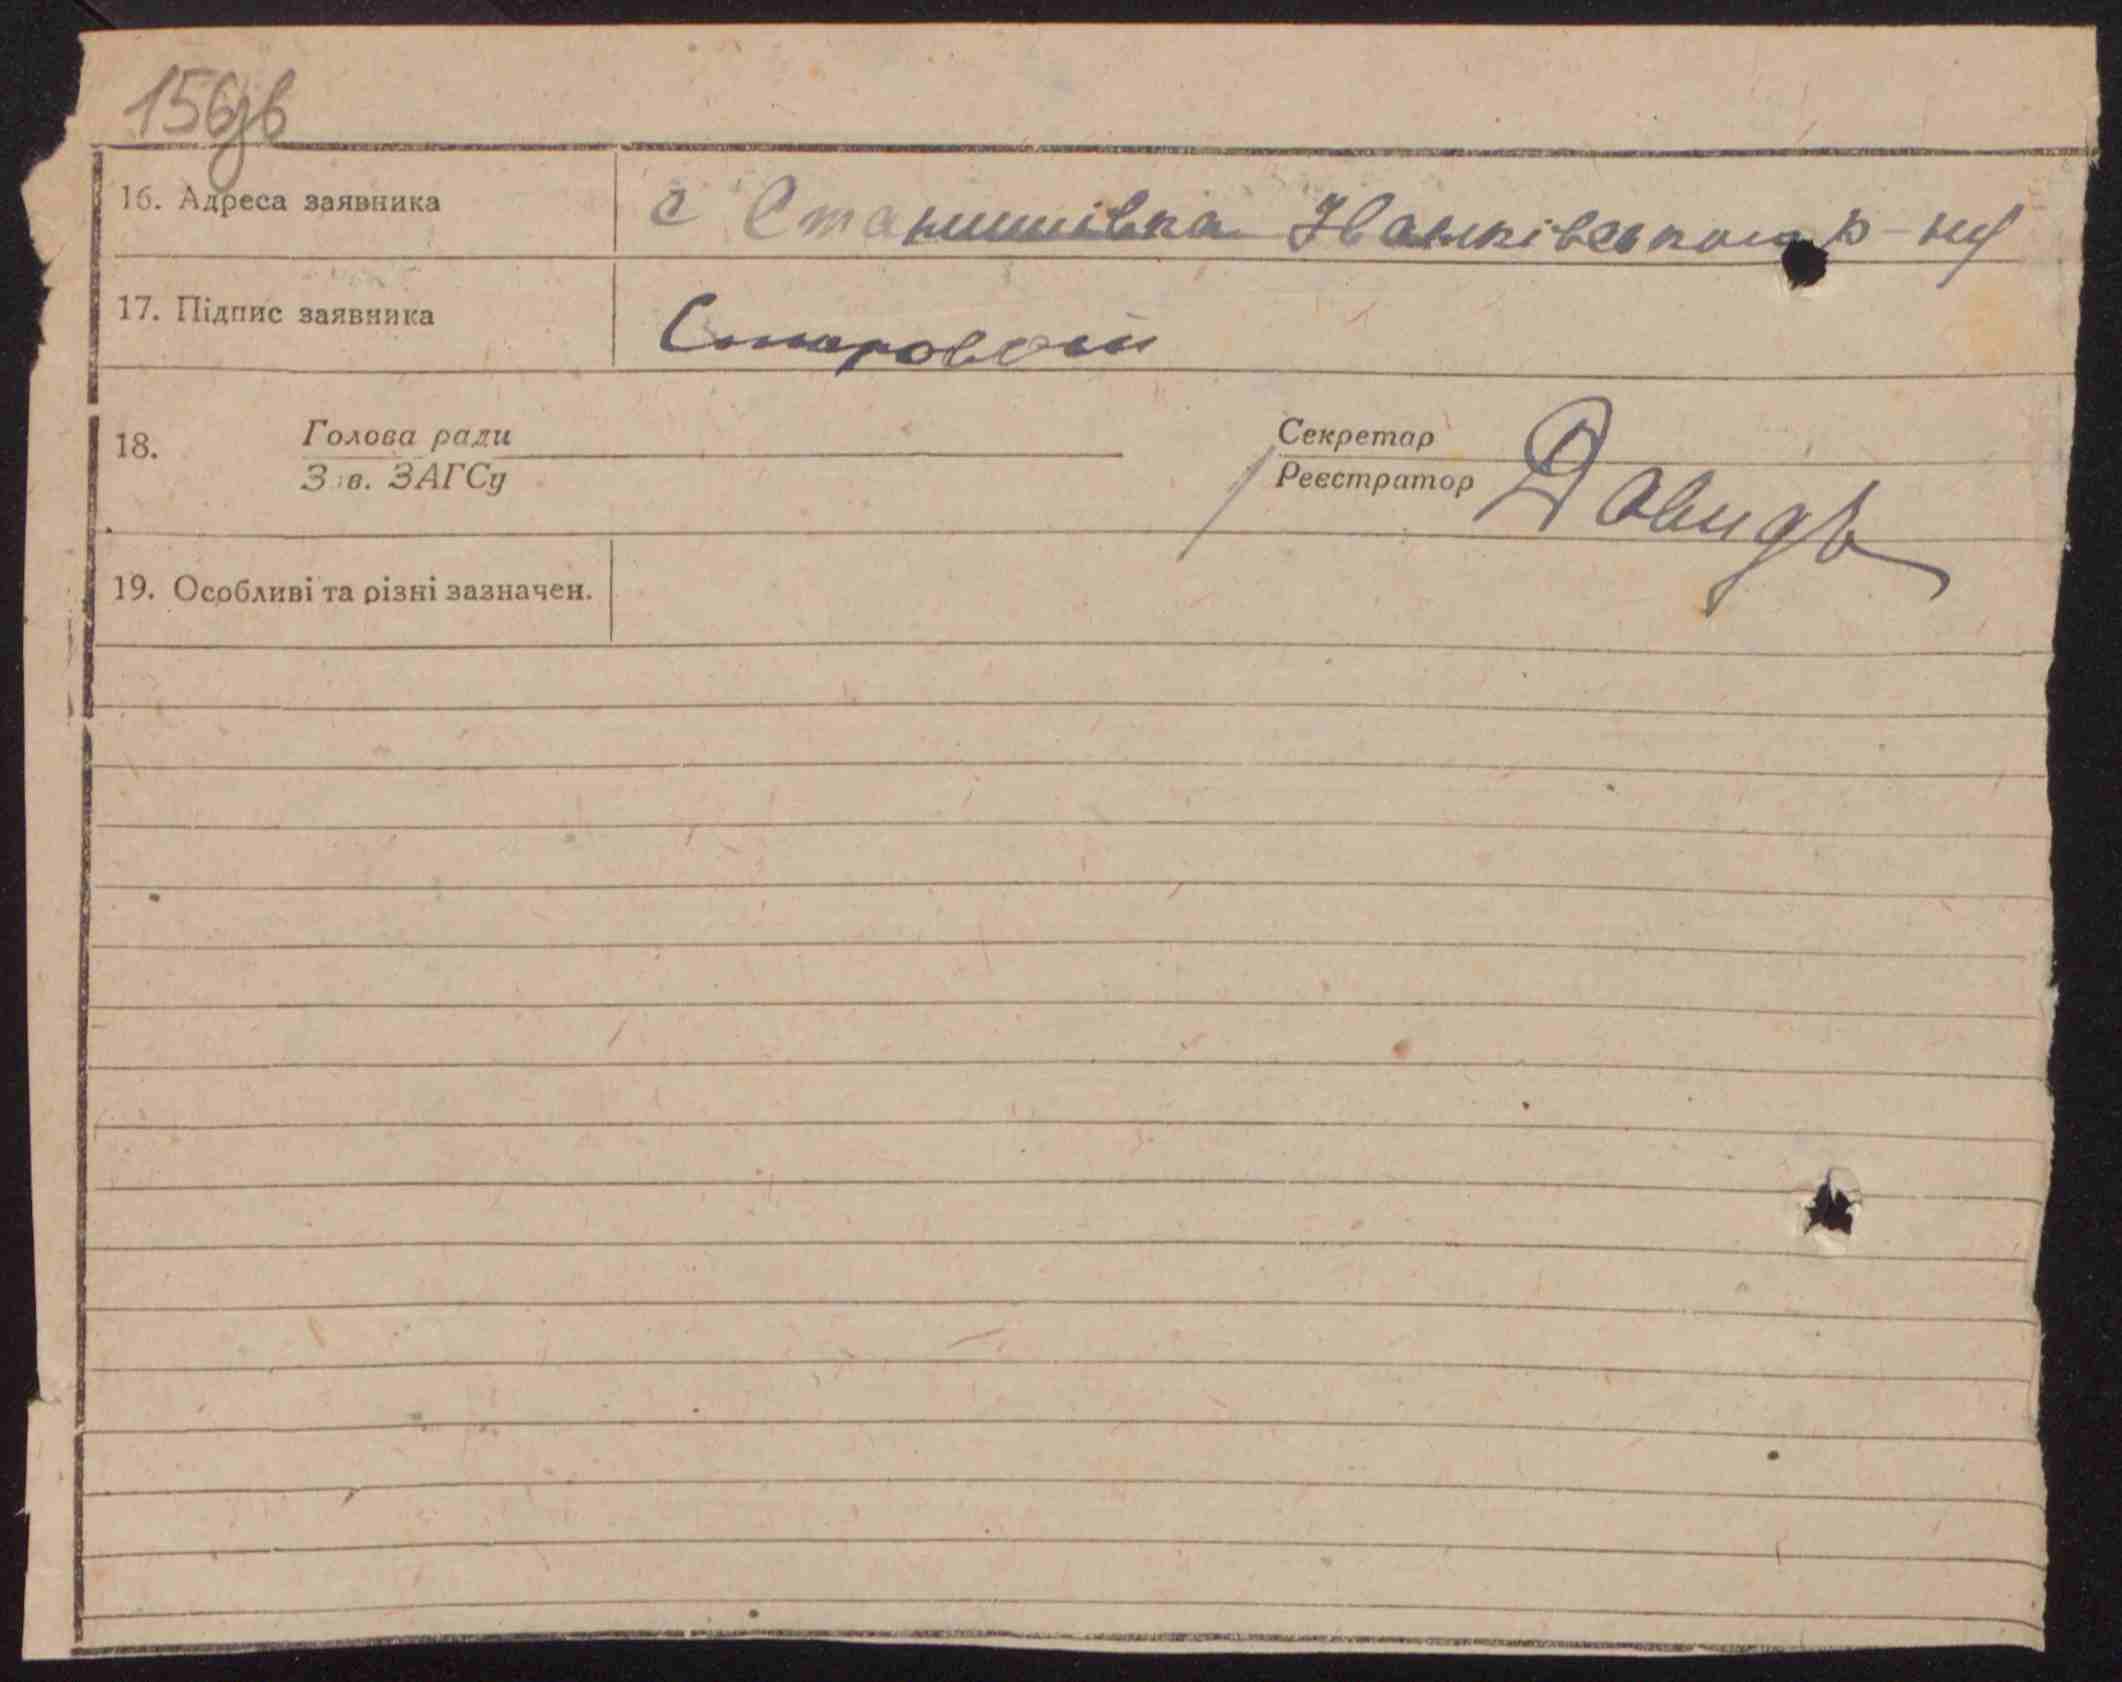 156зв
16. Адреса заявника с Станишівка Іванківського р-ну
17. Підпис заявника
18. Голова ради Секретар
Зав. ЗАГСу Реєстратор Давидв
19. Особливі та різні зазначен.